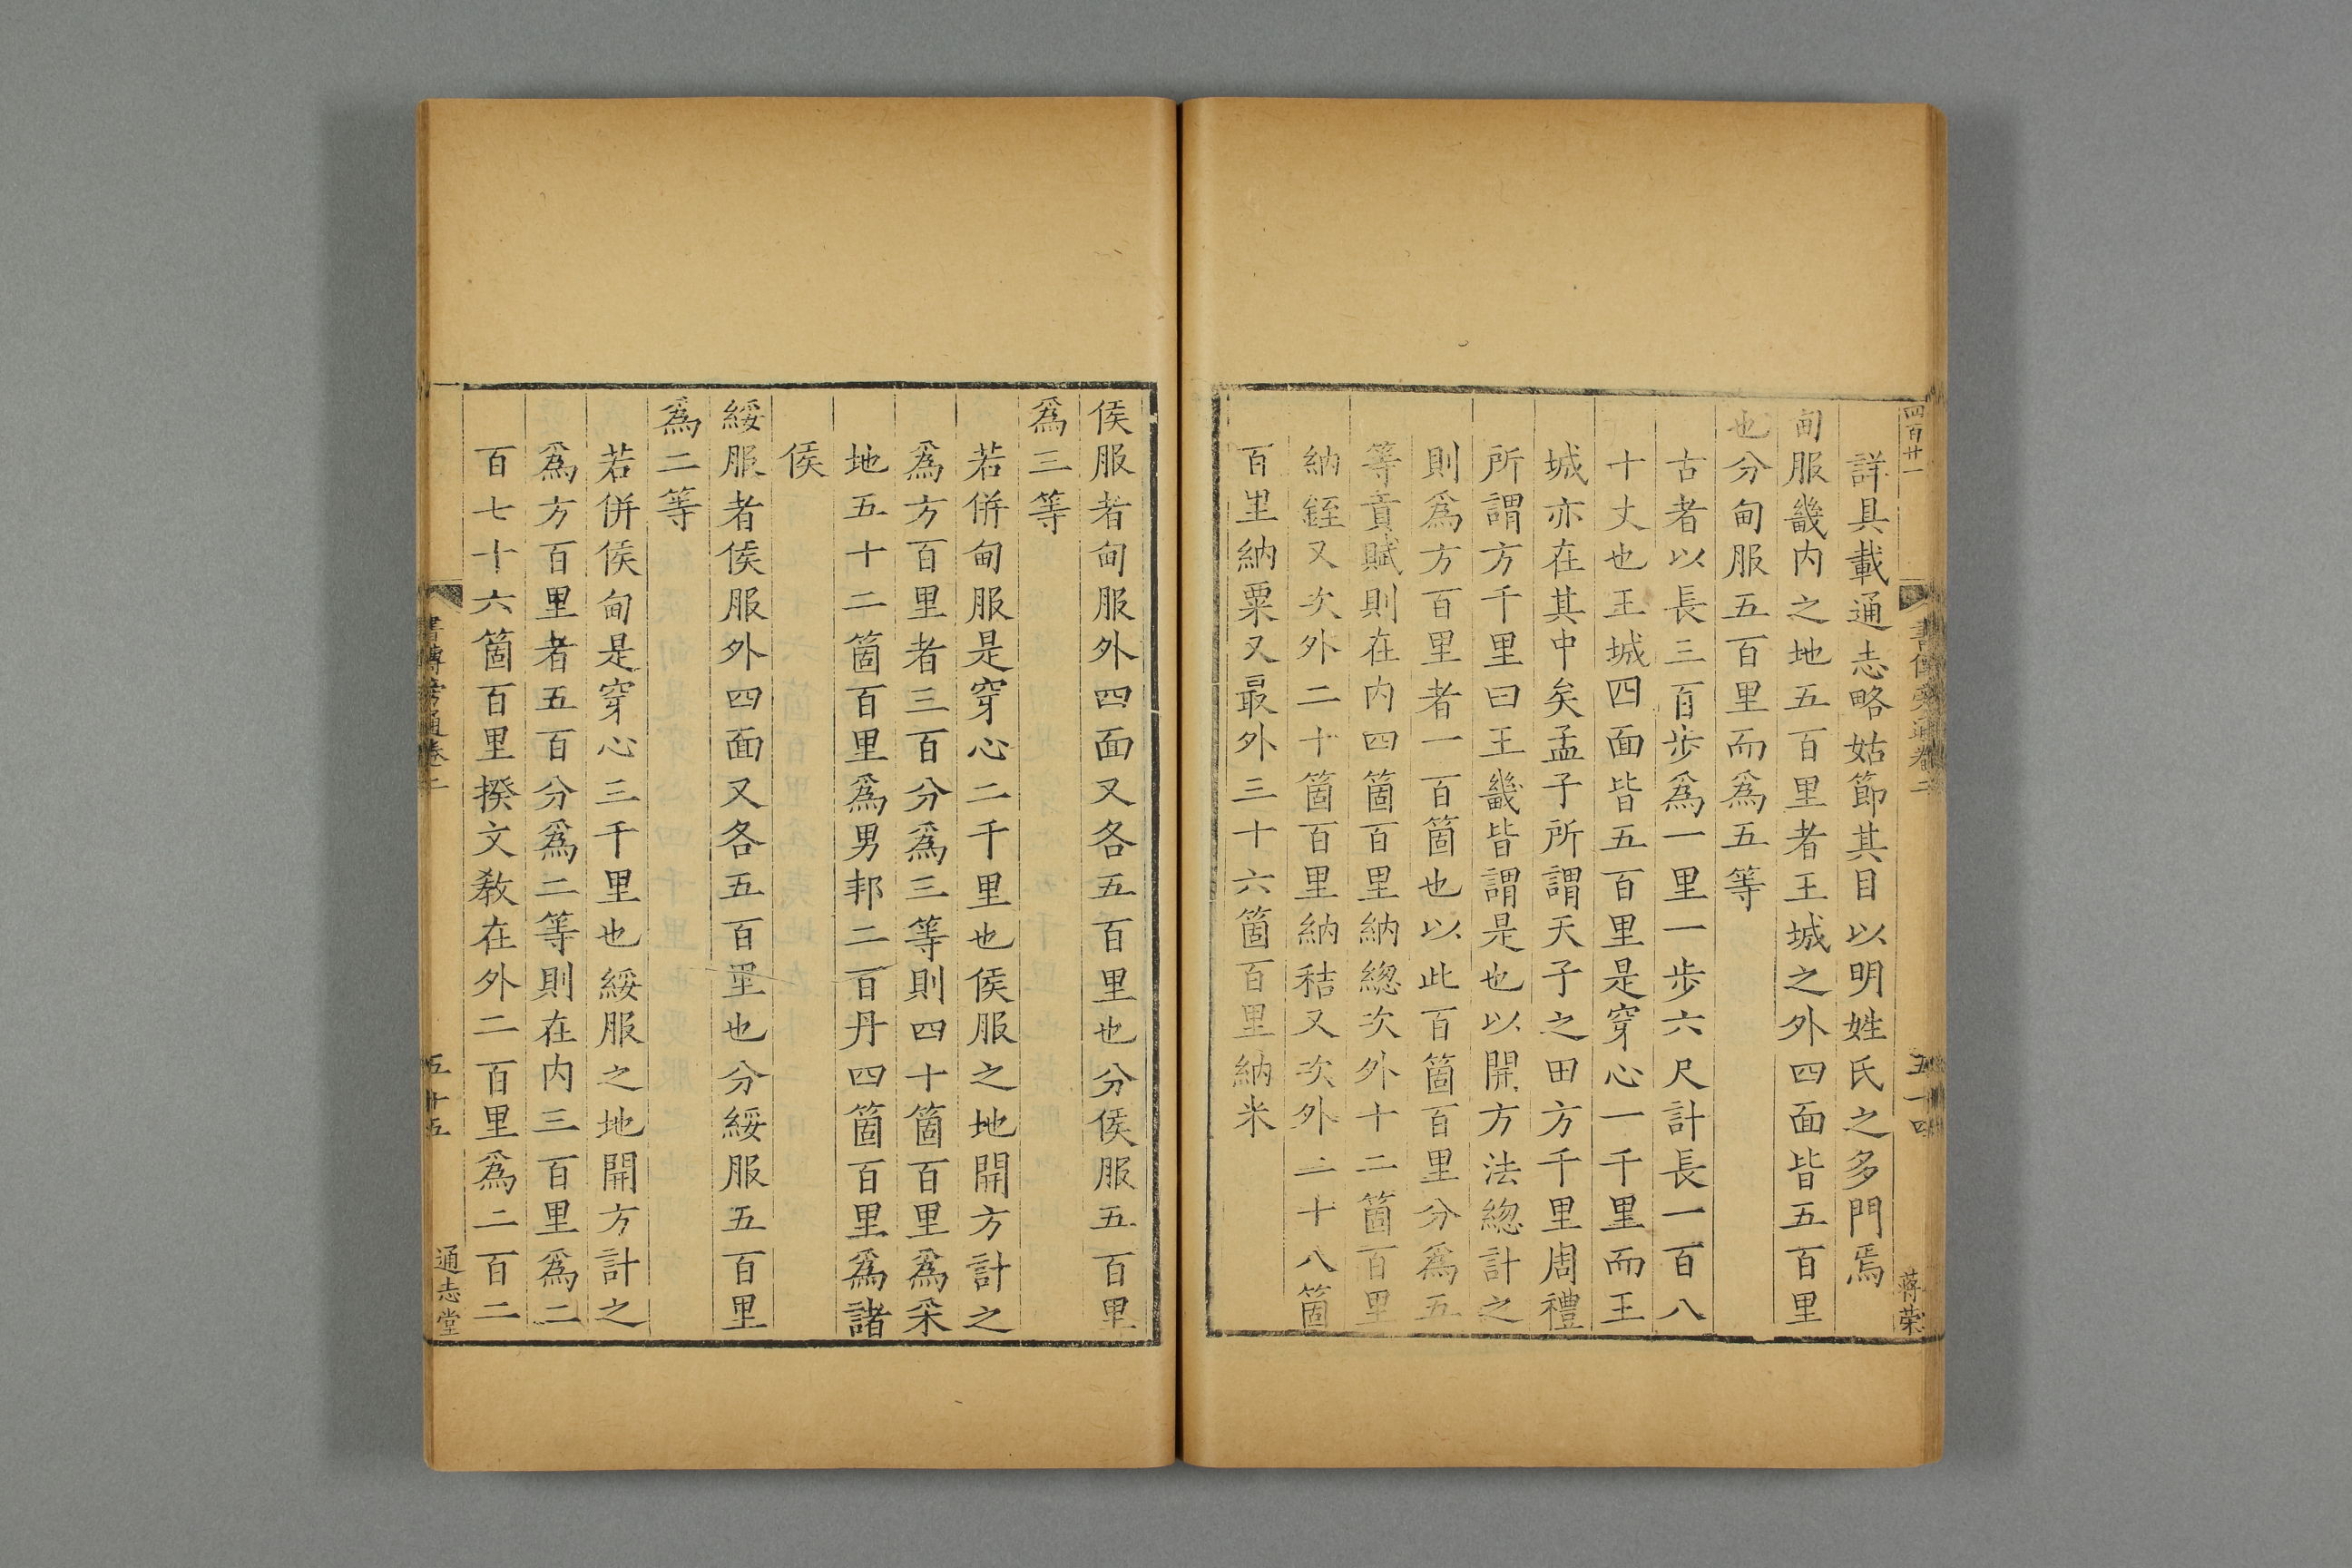 四百廿一
書傳旁通卷二
五十四
蔣榮
詳具載通志略姑節其目以明姓氏之多門焉
甸服畿内之地五百里者王城之外四面皆五百里
也分甸服五百里而爲五等
古者以長三百步爲一里一步六尺計長一百八
十丈也王城四面皆五百里是穿心一千里而王
城亦在其中矣孟子所謂天子之田方千里周禮
所謂方千里曰王畿皆謂是也以開方法緫計之
則爲方百里者一百箇也以此百箇百里分爲五
等貢賦則在内四箇百里納緫次外十二箇百里
納銍又次外二十箇百里納秸又次外二十八箇
百里納粟又最外三十六箇百里納米
侯服者甸服外四面又各五百里也分侯服五百里
爲三等
若併甸服是穿心二千里也侯服之地開方計之
爲方百里者三百分爲三等則四十箇百里爲采
地五十二箇百里爲男邦二百丹四箇百里爲諸
侯
綏服者侯服外四面又各五百里也分綏服五百里
爲二等
若併侯甸是穿心三千里也綏服之地開方計之
爲方百里者五百分爲二等則在内三百里爲二
百七十六箇百里揆文教在外二百里爲二百二
書傳旁通卷二
五十五
通志堂